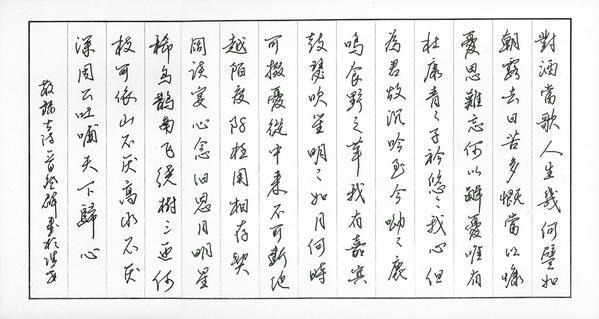 對酒當歌人生幾何譬如
朝露去日苦多慨當以慷
憂思難忘何以解憂唯有
杜康青々子衿悠々我心但
為君故沉吟至今呦々鹿
鳴食野之苹我有嘉賓
鼓瑟吹笙明々如月何時
可掇憂從中來不可斷絕
越陌度阡枉用相存契
闊談宴心念旧恩月明星
稀烏鵲南飞繞樹三匝何
枝可依山不厌高水不厌
深周公吐哺天下歸心
古诗一首